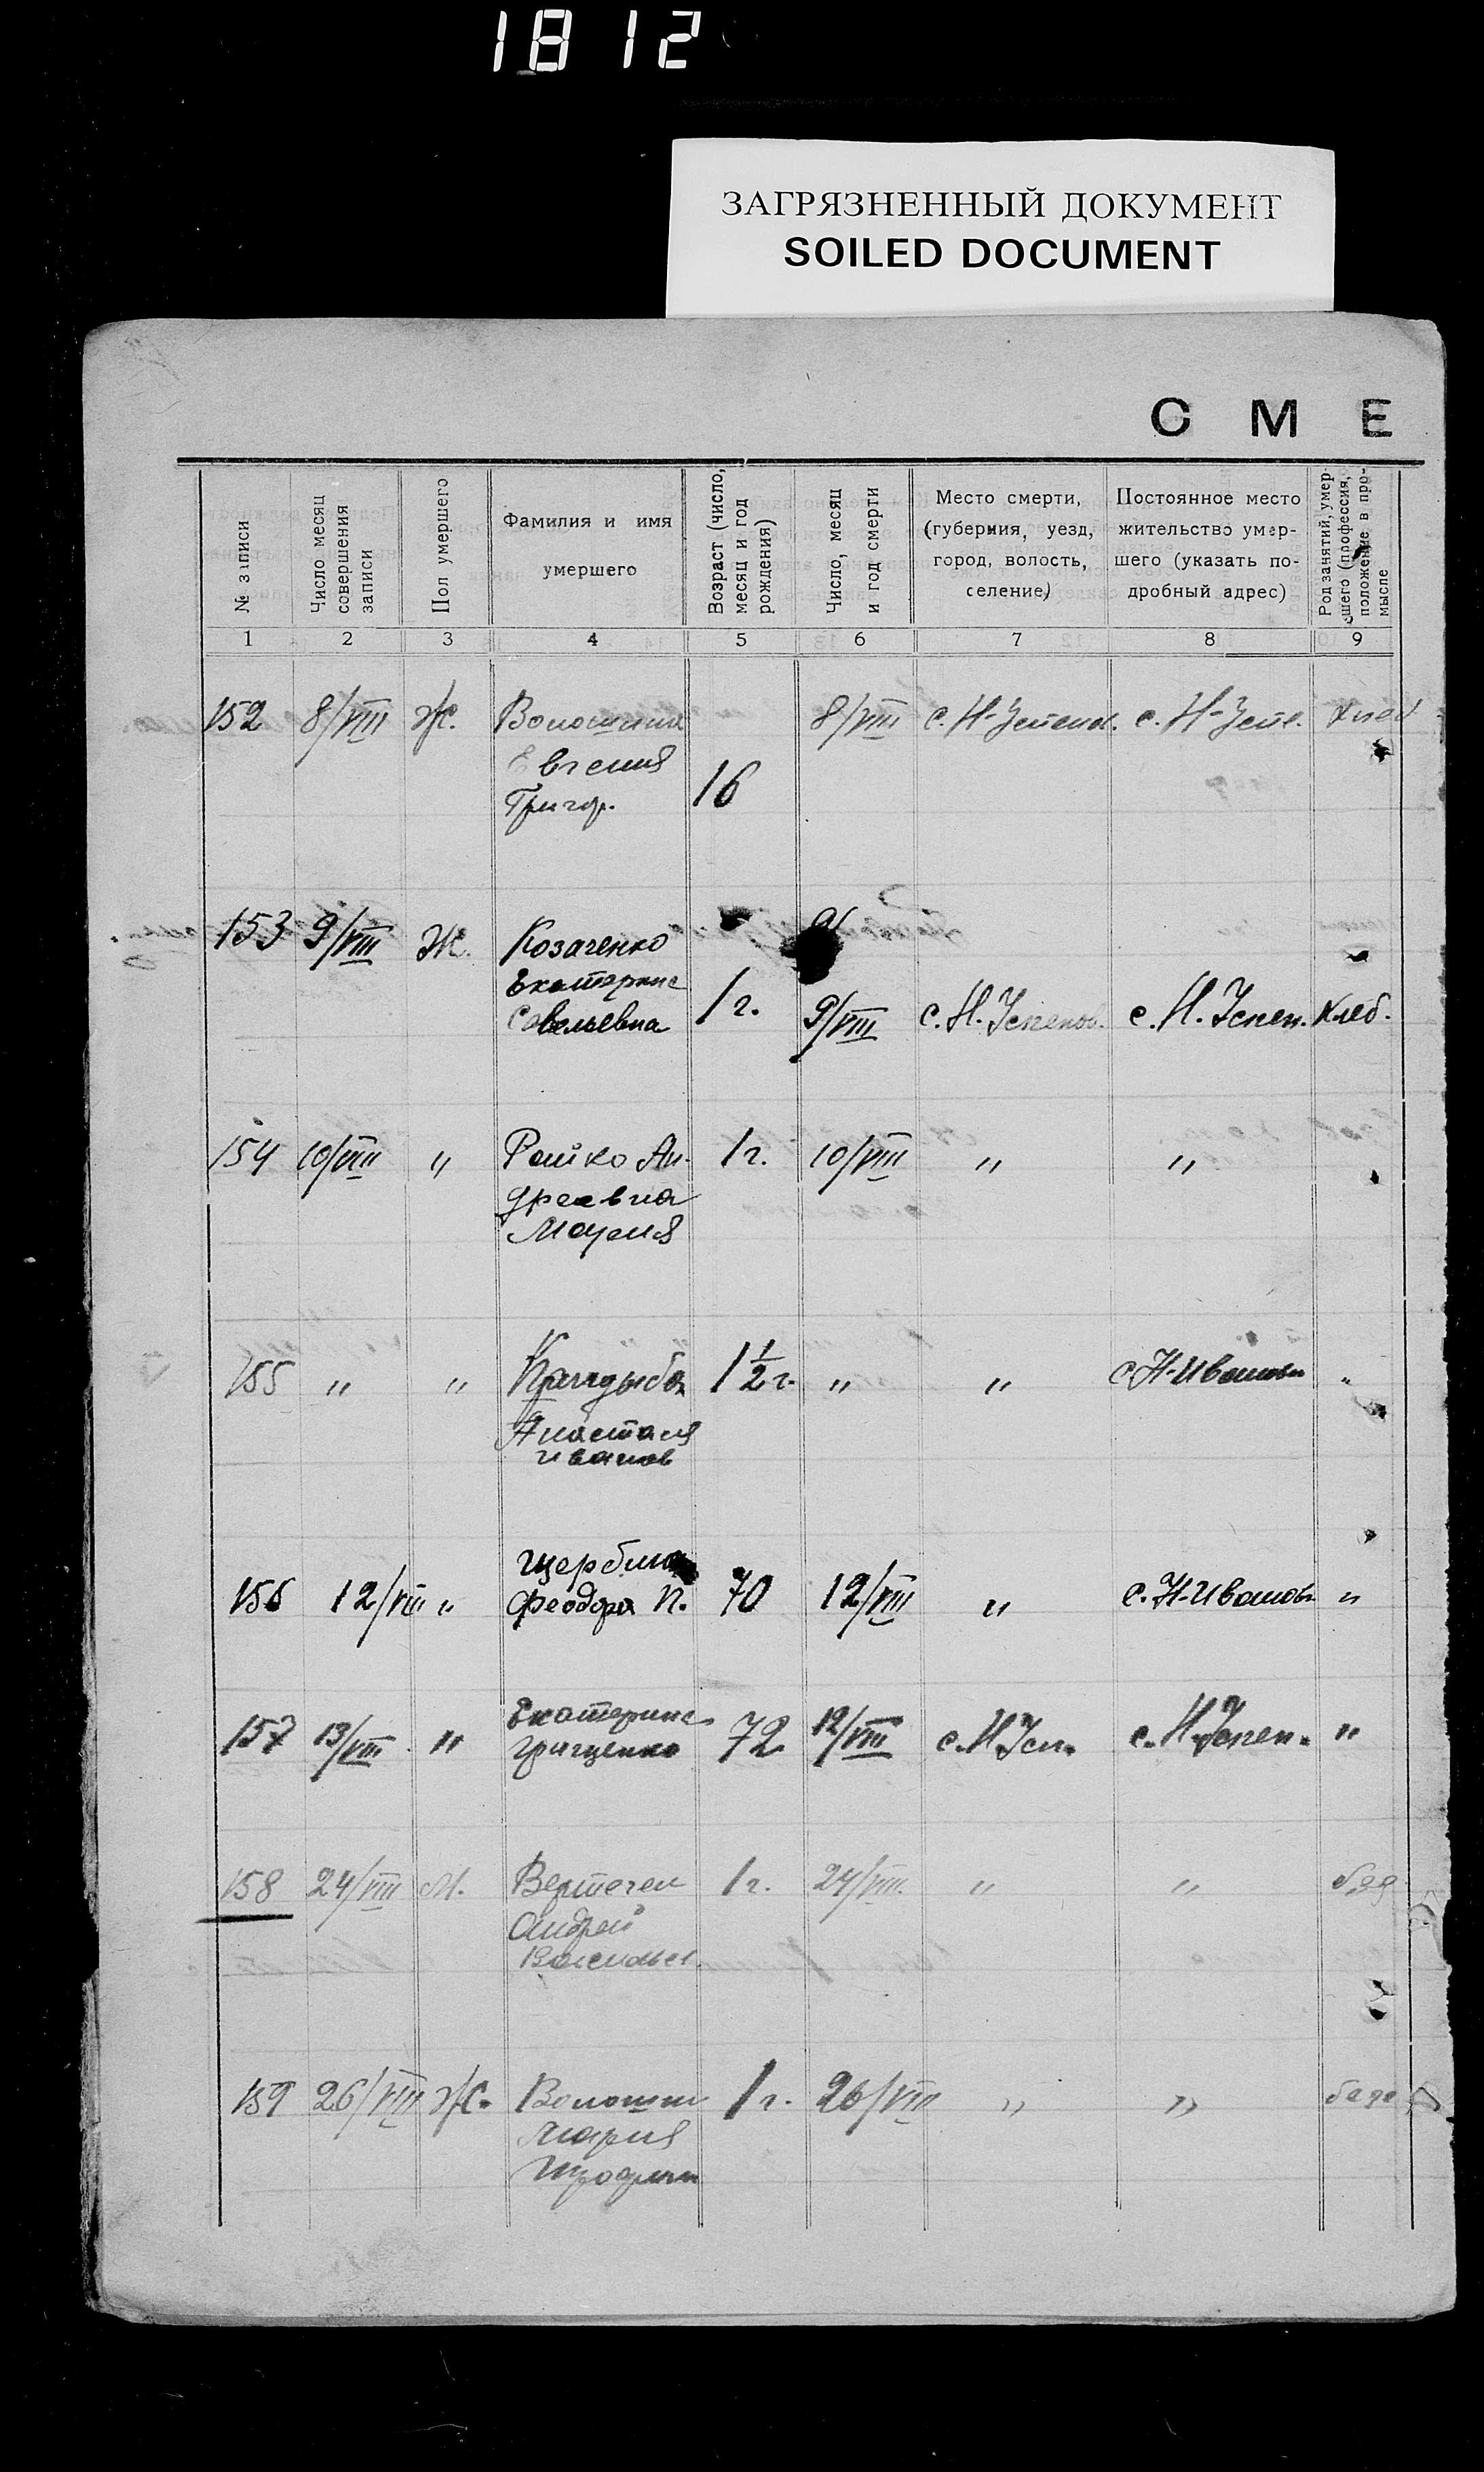 1812
ЗАГРЯЗНЕННЫЙ ДОКУМЕНТ
SOILED DOCUMENT
С М Е
№ записи
Число месяц совершения записи
Пол умершего
Фамилия и имя умершего
Возраст (число, месяц и год рождения)
Число, месяц и год смерти
Место смерти, (губерния, уезд, город, волость, селение)
Постоянное место жительство умершего (указать подробный адрес)
Род занятий, умершего (профессия, положение в промысле
1 2 3 4 5 6 7 8 9
152 8/VIII Ж. 8/VIII с. Н- с. Н-
Евгения
Григор. 16
153 9/VIII Ж. Козаченко
Екатерина
Савельевна 1 г. 9/VIII с. Н. Успенов. с. Н. Успен. Хлеб.
154 10/VIII " Ан- 1 г. 10/VIII " "
дреевна
Мария
155 " " 1 1/2 г. " " с Н-Иванов "
Анастасия
Иванов
Щербина
156 12/VIII " Феодора П. 70 12/VIII " с. Н-Иванов "
Екатерина
157 13/VIII " Грищенко 72 12/VIII с. Н Усп. с. Н. Успен. "
158 24/VIII М. Вертегел 1 г. 24/VIII. " "
Андрей
Васильев.
159 26/VIII Ж. Волошин 1 г. 26/VIII " "
Мария